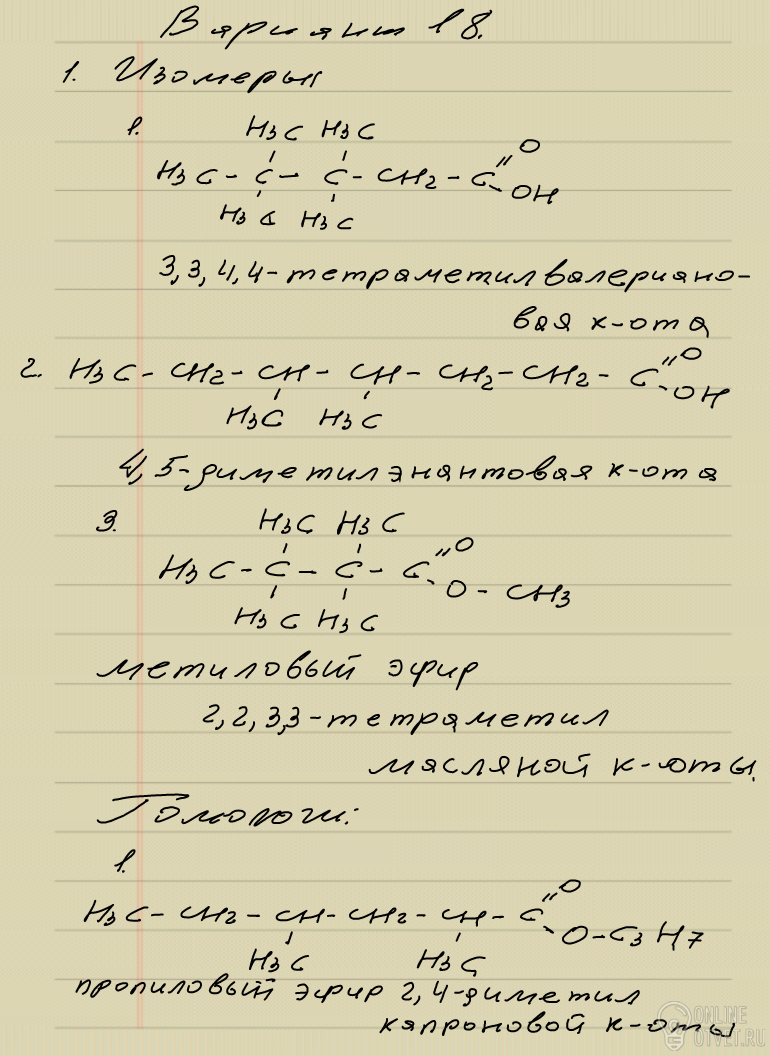 Вариант 18.
1. Изомеры
1.
H3C H3C
H3C - C - C - CH2 - C = O
OH
H3C H3C
3,3,4,4-тетраметилвалериано-
вая к-ота
2. H3C - CH2 - CH - CH - CH2 - CH2 - C = O
OH
H3C H3C
4,5-диметилэнантовая к-ота
3.
H3C H3C
H3C - C - C - C = O
O - CH3
H3C H3C
метиловый эфир
2,2,3,3-тетраметил
масляной к-оты.
Гомологи:
1.
H3C - CH2 - CH - CH2 - CH - C = O
O - C3H7
H3C H3C
пропиловый эфир 2,4-диметил
капроновой к-оты
ONLINE
OTVET.RU